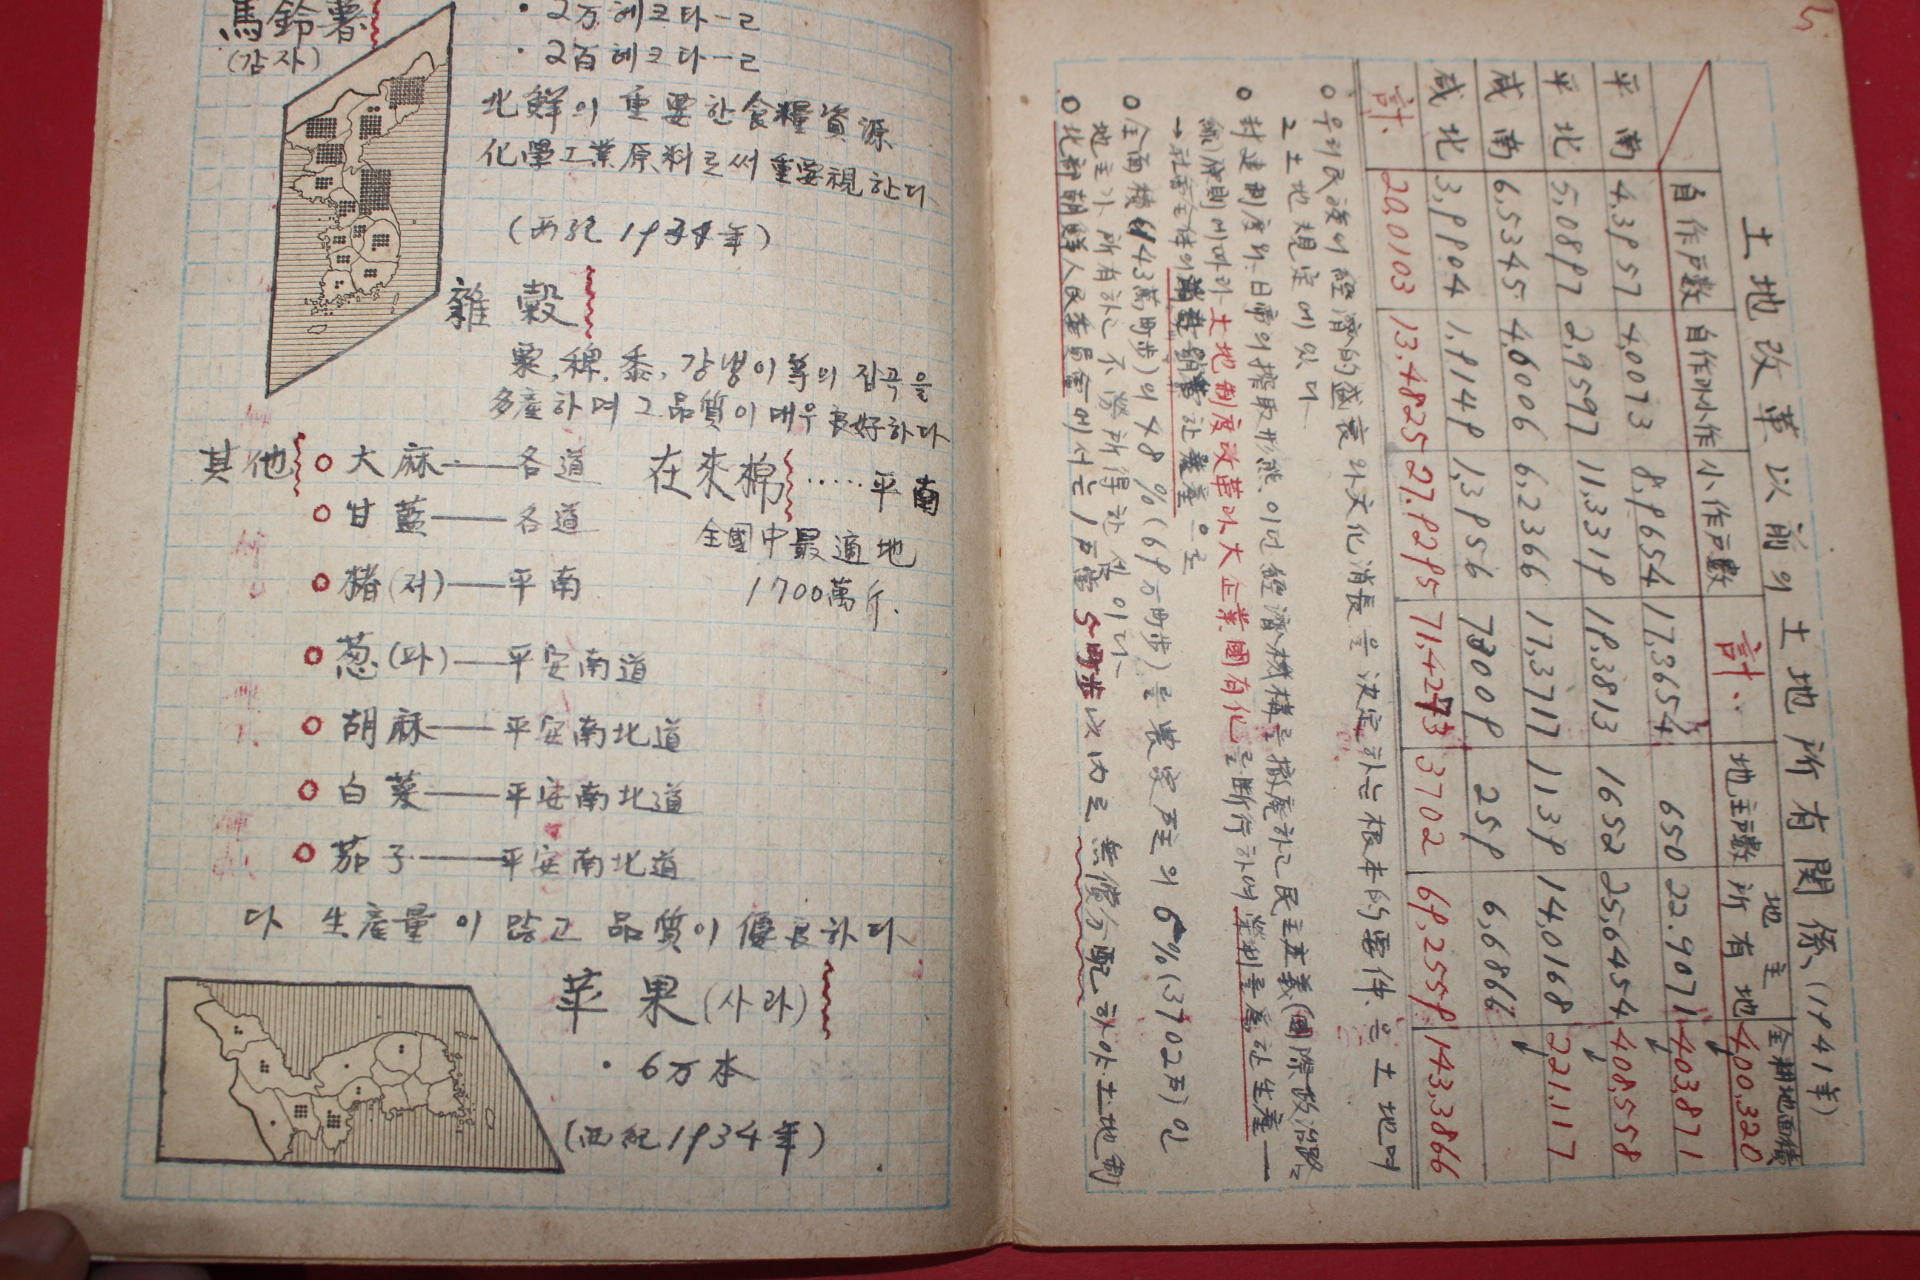 馬鈴薯
(감자)
・2万 헥크타ー르
・2百 헥크타ー르
北鮮의 重要한 食糧資源
化學工業原料로써 重要視한다
(西紀 1934年)
雜穀
粟, 稗, 黍, 강냉이 等의 잡곡을
多產하며 그 品質이 매우 良好하다
其他
○ 大麻——各道
○ 甘藍——各道
○ 猪(저)——平南
○ 葱(파)——平安南道
○ 胡麻——平安南北道
○ 白菜——平安南北道
○ 茄子——平安南北道
在來棉·····平南
全國中最適地
1700萬斤.
다 生産量이 많고 品質이 優良하다
苹果(사과)
・6万本
(西紀1934年)
5
土地改革以前의 土地所有関係 (1941年)
自作戸數 自作兼小作 小作戸數 計 地主戸數 地主所有地 全耕地面積
400,320
平南 4,3957 4,0073 8,9654 17,3654 650 22.9071 403,871
平北 5,0897 2,9597 11,3319 19,3813 1652 25,6454 408,558
咸南 6,5345 4,6006 6,2366 17,3717 1139 14,0168 221,117
咸北 3,9904 1,9149 1,3956 7,3009 259 6,6866
計. 20,0103 13,4825 27,9295 71,4273 3702 69,2559 143,3866
○ 우리民族의 經濟的 盛衰와 文化消長을 決定하는 根本的 要件은 土地며
그 土地規定에 있다
○ 封建制度와 日帝의 搾取形態, 이런 經濟機構를 撤廃하고 民主主義(國際政治路
線)原則에 따라 土地制度改革과 大企業國有化를 断行하여 營利를 爲한 生産—
→社會全体의 消費 한 産으로
○ 全面積(143萬町步)의 48%(69万町步)를 農家戸主의 6%(3702戸)인
地主가 所有하는 不勞所得한 셈이다
○ 北部朝鮮人民委員會에서는 1戸當 5町步 以內로 無償分配하야 土地制